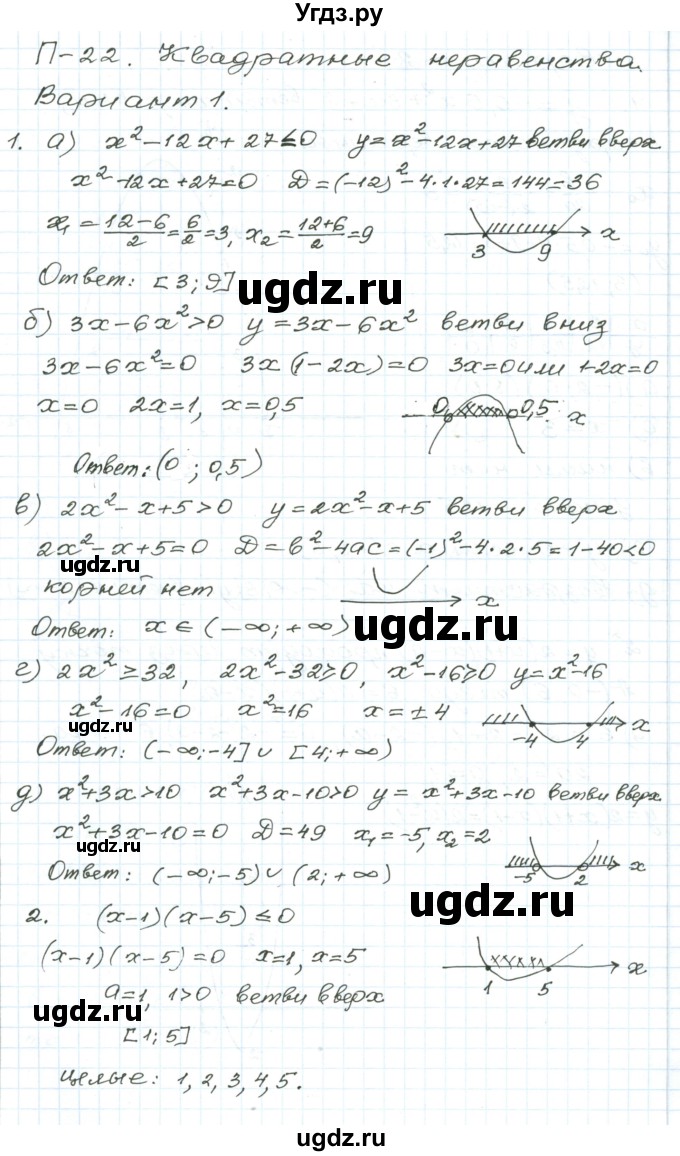 Угдз.ру
П-22. Квадратные неравенства.
Вариант 1.
1. а) x²-12x+27≤0 y=x²-12x+27 ветви вверх
x²-12x+27=0 D=(-12)²-4·1·27=144=36
x₁=12-6/2=6/2=3, x₂=12+6/2=9 3 9 x
Ответ: [3;9]
ugdz.ru
б) 3x-6x²>0 y=3x-6x² ветви вниз
3x-6x²=0 3x(1-2x)=0 3x=0 или 1-2x=0
x=0 2x=1, x=0,5 0 0,5 x
Ответ: (0; 0,5)
в) 2x²-x+5>0 y=2x²-x+5 ветви вверх
2x²-x+5=0 D=b²-4ac=(-1)²-4·2·5=1-40<0
ugdz.ru
корней нет x
Ответ: x∈(-∞;+∞)
ugdz.ru
г) 2x²≥32, 2x²-32≥0, x²-16≥0 y=x²-16
x²-16=0 x²=16 x=±4 -4 4 x
ugdz.ru
Ответ: (-∞;-4]∪[4;+∞)
д) x²+3x>10 x²+3x-10>0 y=x²+3x-10 ветви вверх
x²+3x-10=0 D=49 x₁=-5, x₂=2
ugdz.ru
Ответ: (-∞;-5)∪(2;+∞) -5 2 x
ugdz.ru
2. (x-1)(x-5)≤0
(x-1)(x-5)=0 x=1, x=5 1 5 x
a=1, 1>0 ветви вверх
ugdz.ru
[1;5]
целые: 1,2,3,4,5.
ugdz.ru